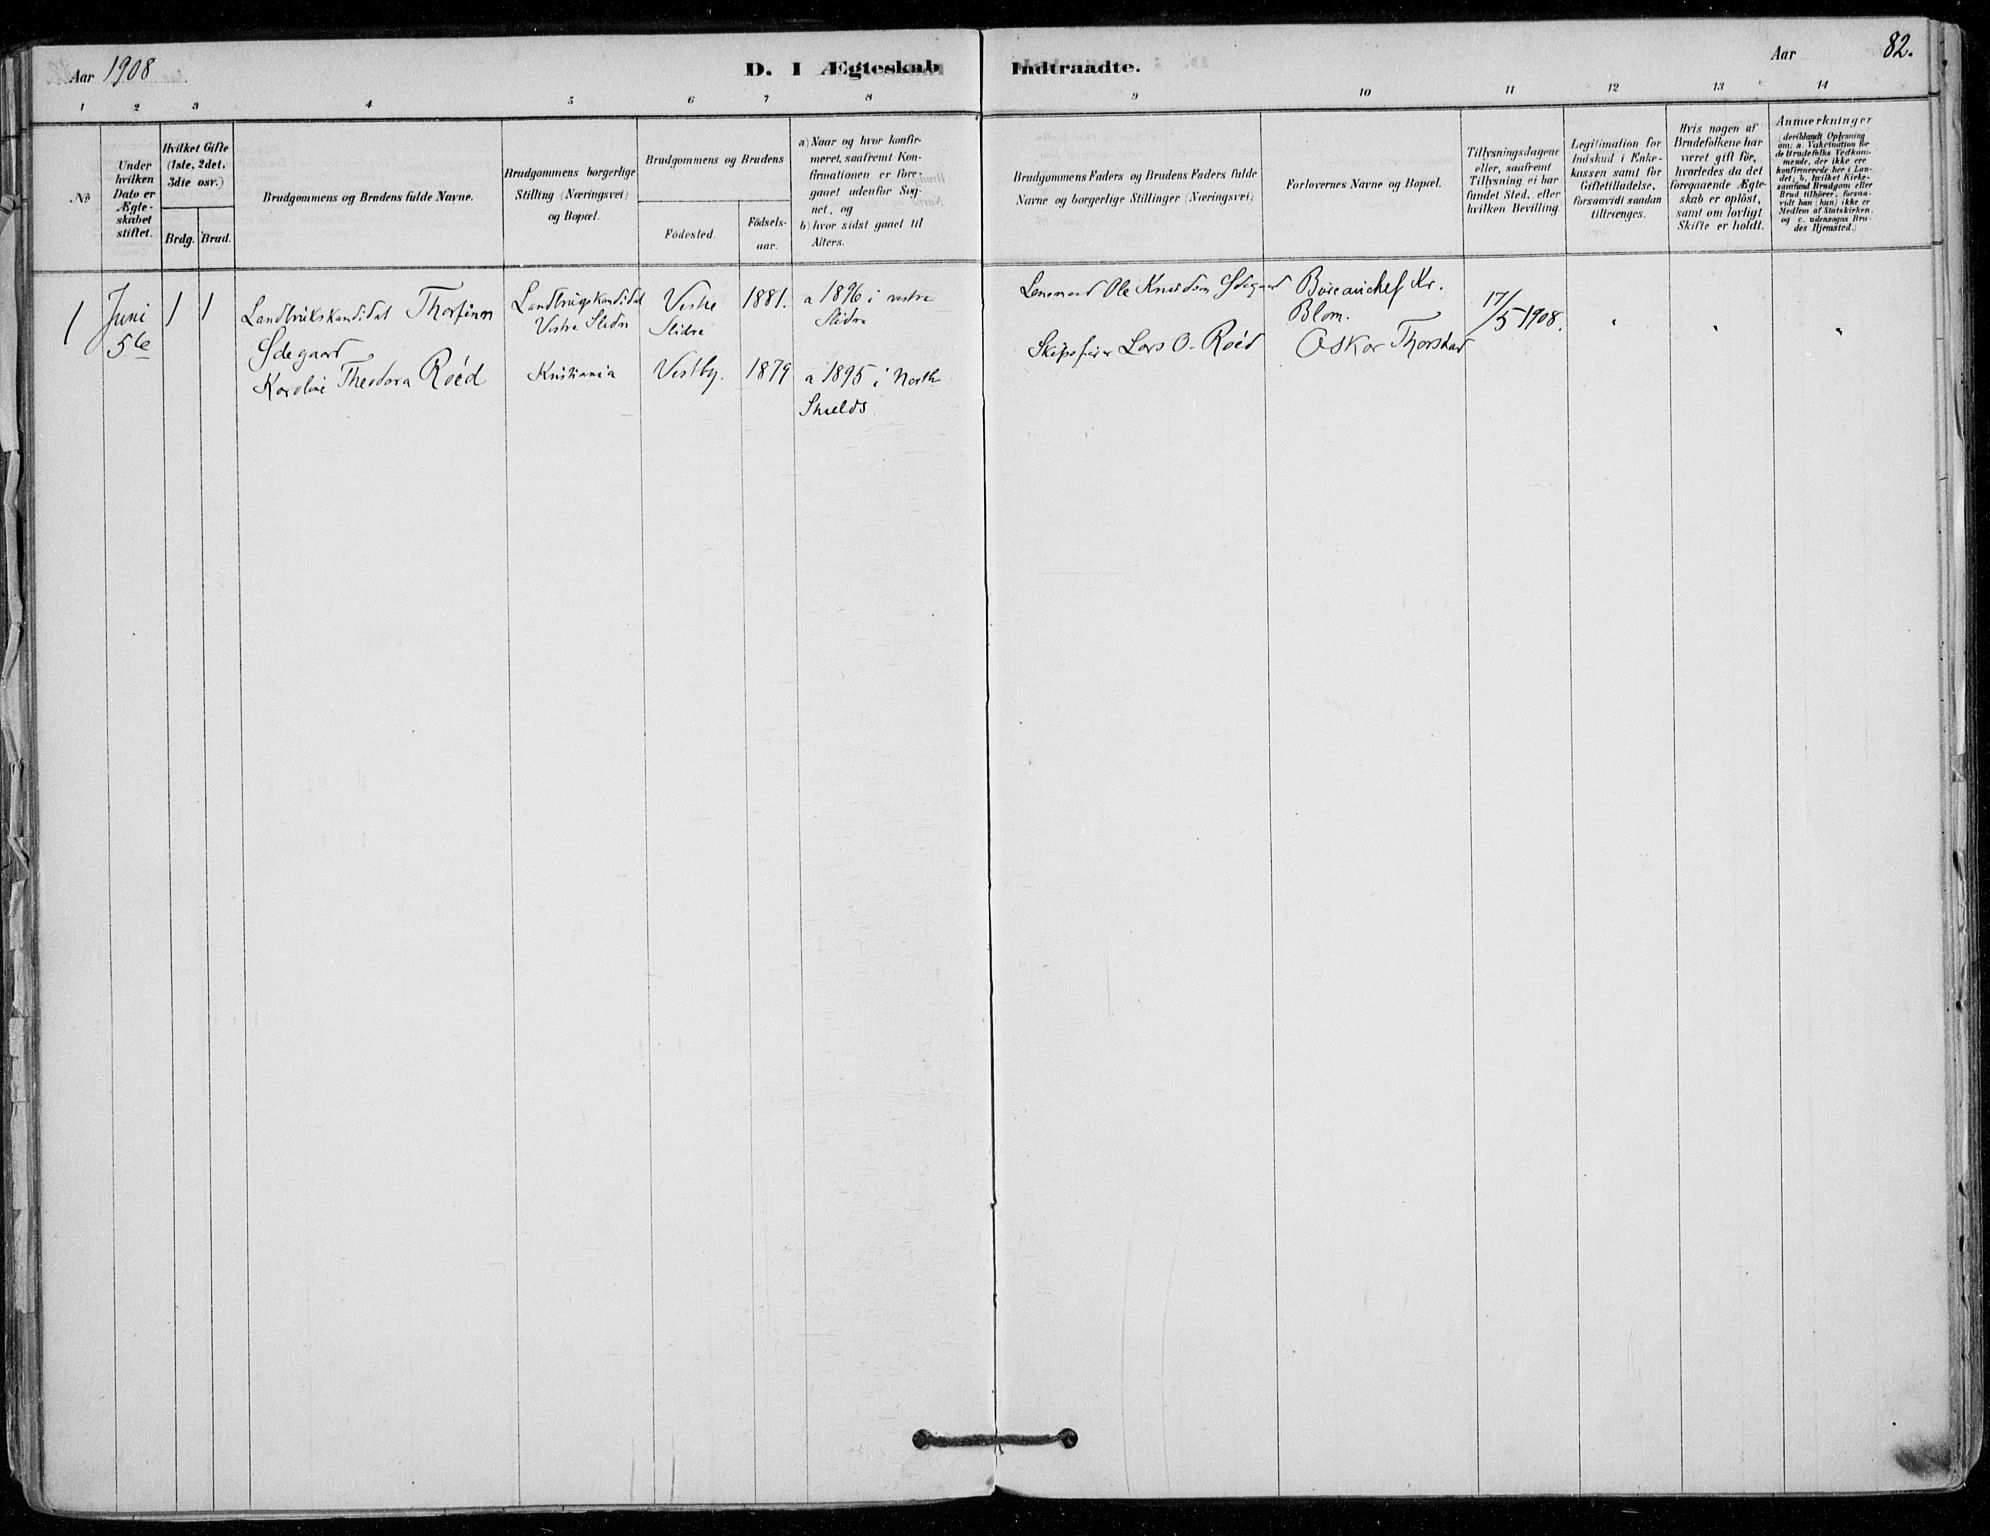 Aar 1908
D. I Ægteskab Indtraadte.
Aar 82.
1 2 3 4 5 6 7 8 9 10 11 12 13 14
No
Under
hvilken
Dato er
Ægte-
skabet
stiftet.
Hvilket Gifte
(1ste, 2det,
3die osv.)
Brdg. Brud.
Brudgommens og Brudens fulde Navne.
Brudgommens borgerlige
Stilling (Næringsvei)
og Bopæl.
Brudgommens og Brudens
Födested.
Födsels-
aar.
a) Naar og hvor konfir-
meret, saafremt Kon-
firmationen er fore-
gaaet udenfor Sog-
net, og
b) hvor sidst gaaet til
Alters.
Brudgommens Faders og Brudens Faders fulde
Navne og borgerlige Stillinger (Næringsvei)
Forlovernes Navne og Bopæl.
Tillysningsdagene
eller, saafremt
Tillysning ei har
fundet Sted, efter
hvilken Bevilling.
Legitimation for
Indskud i Enke-
kassen samt for
Giftetilladelse,
forsaavidt saadan
tiltrænges.
Hvis nogen af
Brudefolkene har
været gift för,
hvorledes da det
foregaaende Ægte-
skab er oplöst,
samt om lovligt
Skifte er holdt.
Anmærkninger
(deriblandt Oplysning
om: a. Vakcination for
de Brudefolks Vedkom-
mende, der ikke ere
konfirmerede her i Lan-
det; b. hvilket Kirke-
samfund Brudgom eller
Brud tilhörer, forsaa-
vidt han (hun) ikke er
Medlem af Statskirken,
og c. udensogns Bru-
des Hjemsted.)
1
Juni
5te
1 1
Landbrukskandidat Thorfinn
Ødegaard
Karoline Theodora Roéd
Landbrugskandidat
Vestre Slidre
Kristiania
Vestre
Slidre
Vestby.
1881.
1879
a 1896 i vestre
Slidre
a 1895 i North
Shields.
Lensmand Ole Knudsen Ødegaard
Skipsfører Lars O. Roéd
Bureauchef Kr.
Blom.
Oskar Thorstad
17/5 1908.
" " "